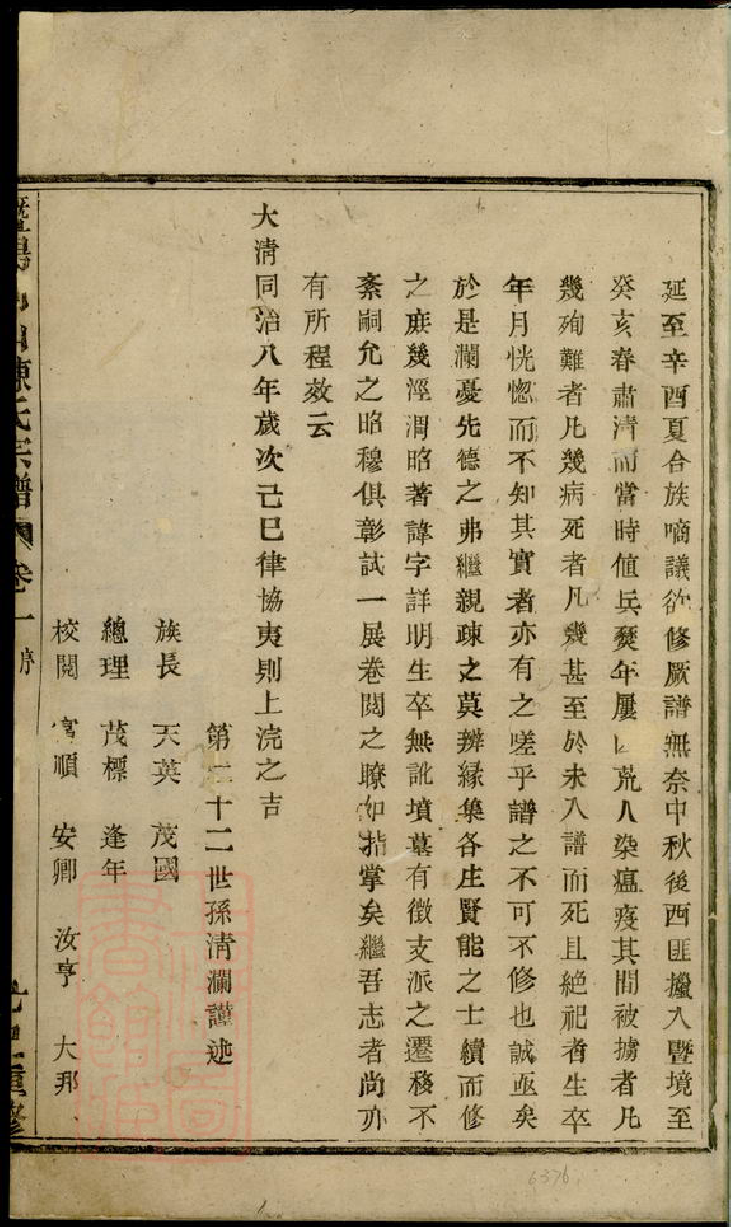 延至辛酉夏合族啇議欲修厥譜無奈中秋後西匪擾入暨境至
癸亥春肅清而當時値兵燹年屢凶荒人染瘟疫其間被擄者凡
幾殉難者凡幾病死者凡幾甚至於未入譜而死且絶祀者生卒
年月恍惚而不知其實者亦有之嗟乎譜之不可不修也誠亟矣
於是瀾憂先德之弗繼親疎之莫辨緣集各庄賢能之士續而修
之庶幾涇渭昭著諱字詳明生卒無訛墳墓有徵支派之遷移不
紊嗣允之昭穆俱彰試一展卷閱之瞭如指掌矣繼吾志者尚亦
有所程效云
大清同治八年歲次己巳律協夷則上浣之吉
第二十二世孫清瀾謹述
族長 天英 茂國
總理 茂標 逢年
校閱 富順 安卿 汝亨 大邦
暨陽 陳氏宗譜 卷一 序 重修
6376